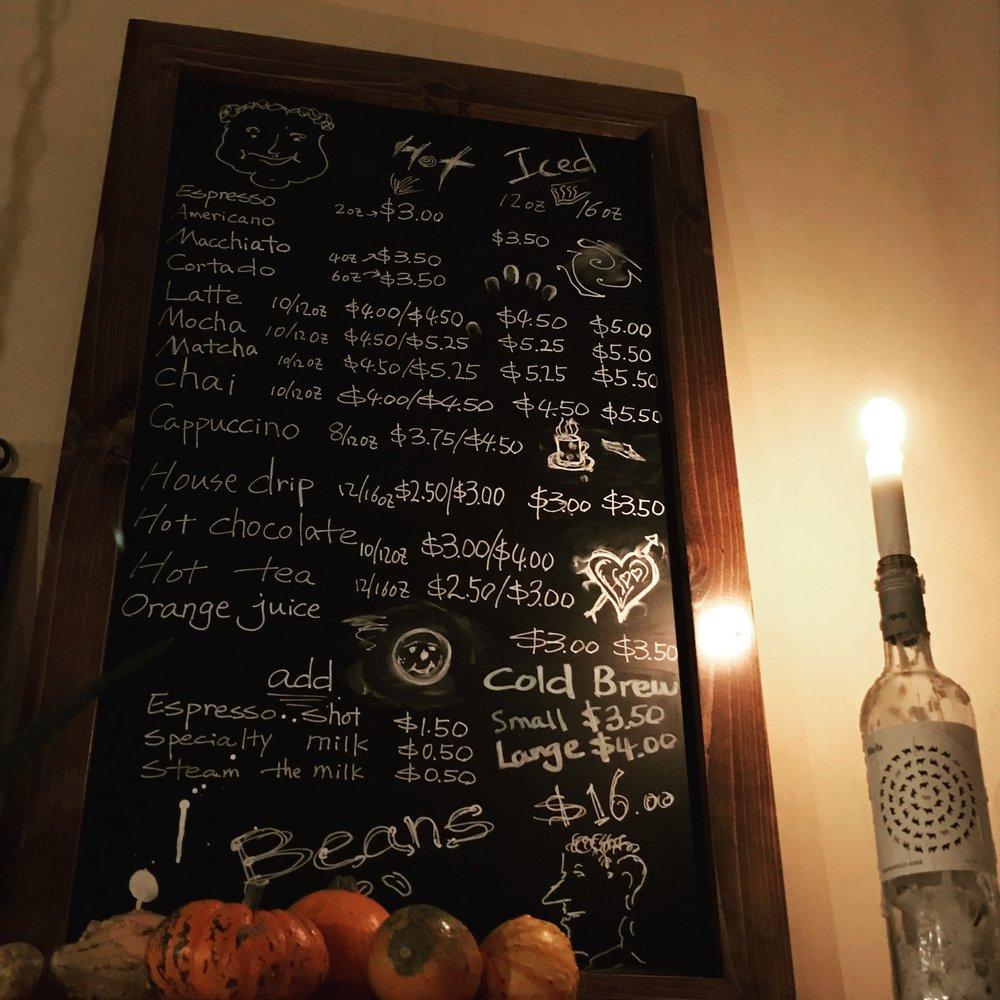 Hot Iced
12oz /16oz
Espresso 2oz→$3.00
Americano $3.50
Macchiato 4oz→$3.50
Cortado 6oz→$3.50
Latte 10/12oz $4.00/$4.50 $4.50 $5.00
Mocha 10/12oz $4.50/$5.25 $5.25 $5.50
Matcha 10/12oz $4.50/$5.25 $5.25 $5.50
Chai 10/12oz $4.00/$4.50 $4.50 $5.50
Cappuccino 8/12oz $3.75/$4.50
House drip 12/16oz $2.50/$3.00 $3.00 $3.50
Hot chocolate 10/12oz $3.00/$4.00
Hot tea 12/16oz $2.50/$3.00
Orange juice $3.00 $3.50
add
Espresso..shot $1.50
Specialty milk $0.50
Steam the milk $0.50
Cold Brew
Small $3.50
Large $4.00
Beans $16.00